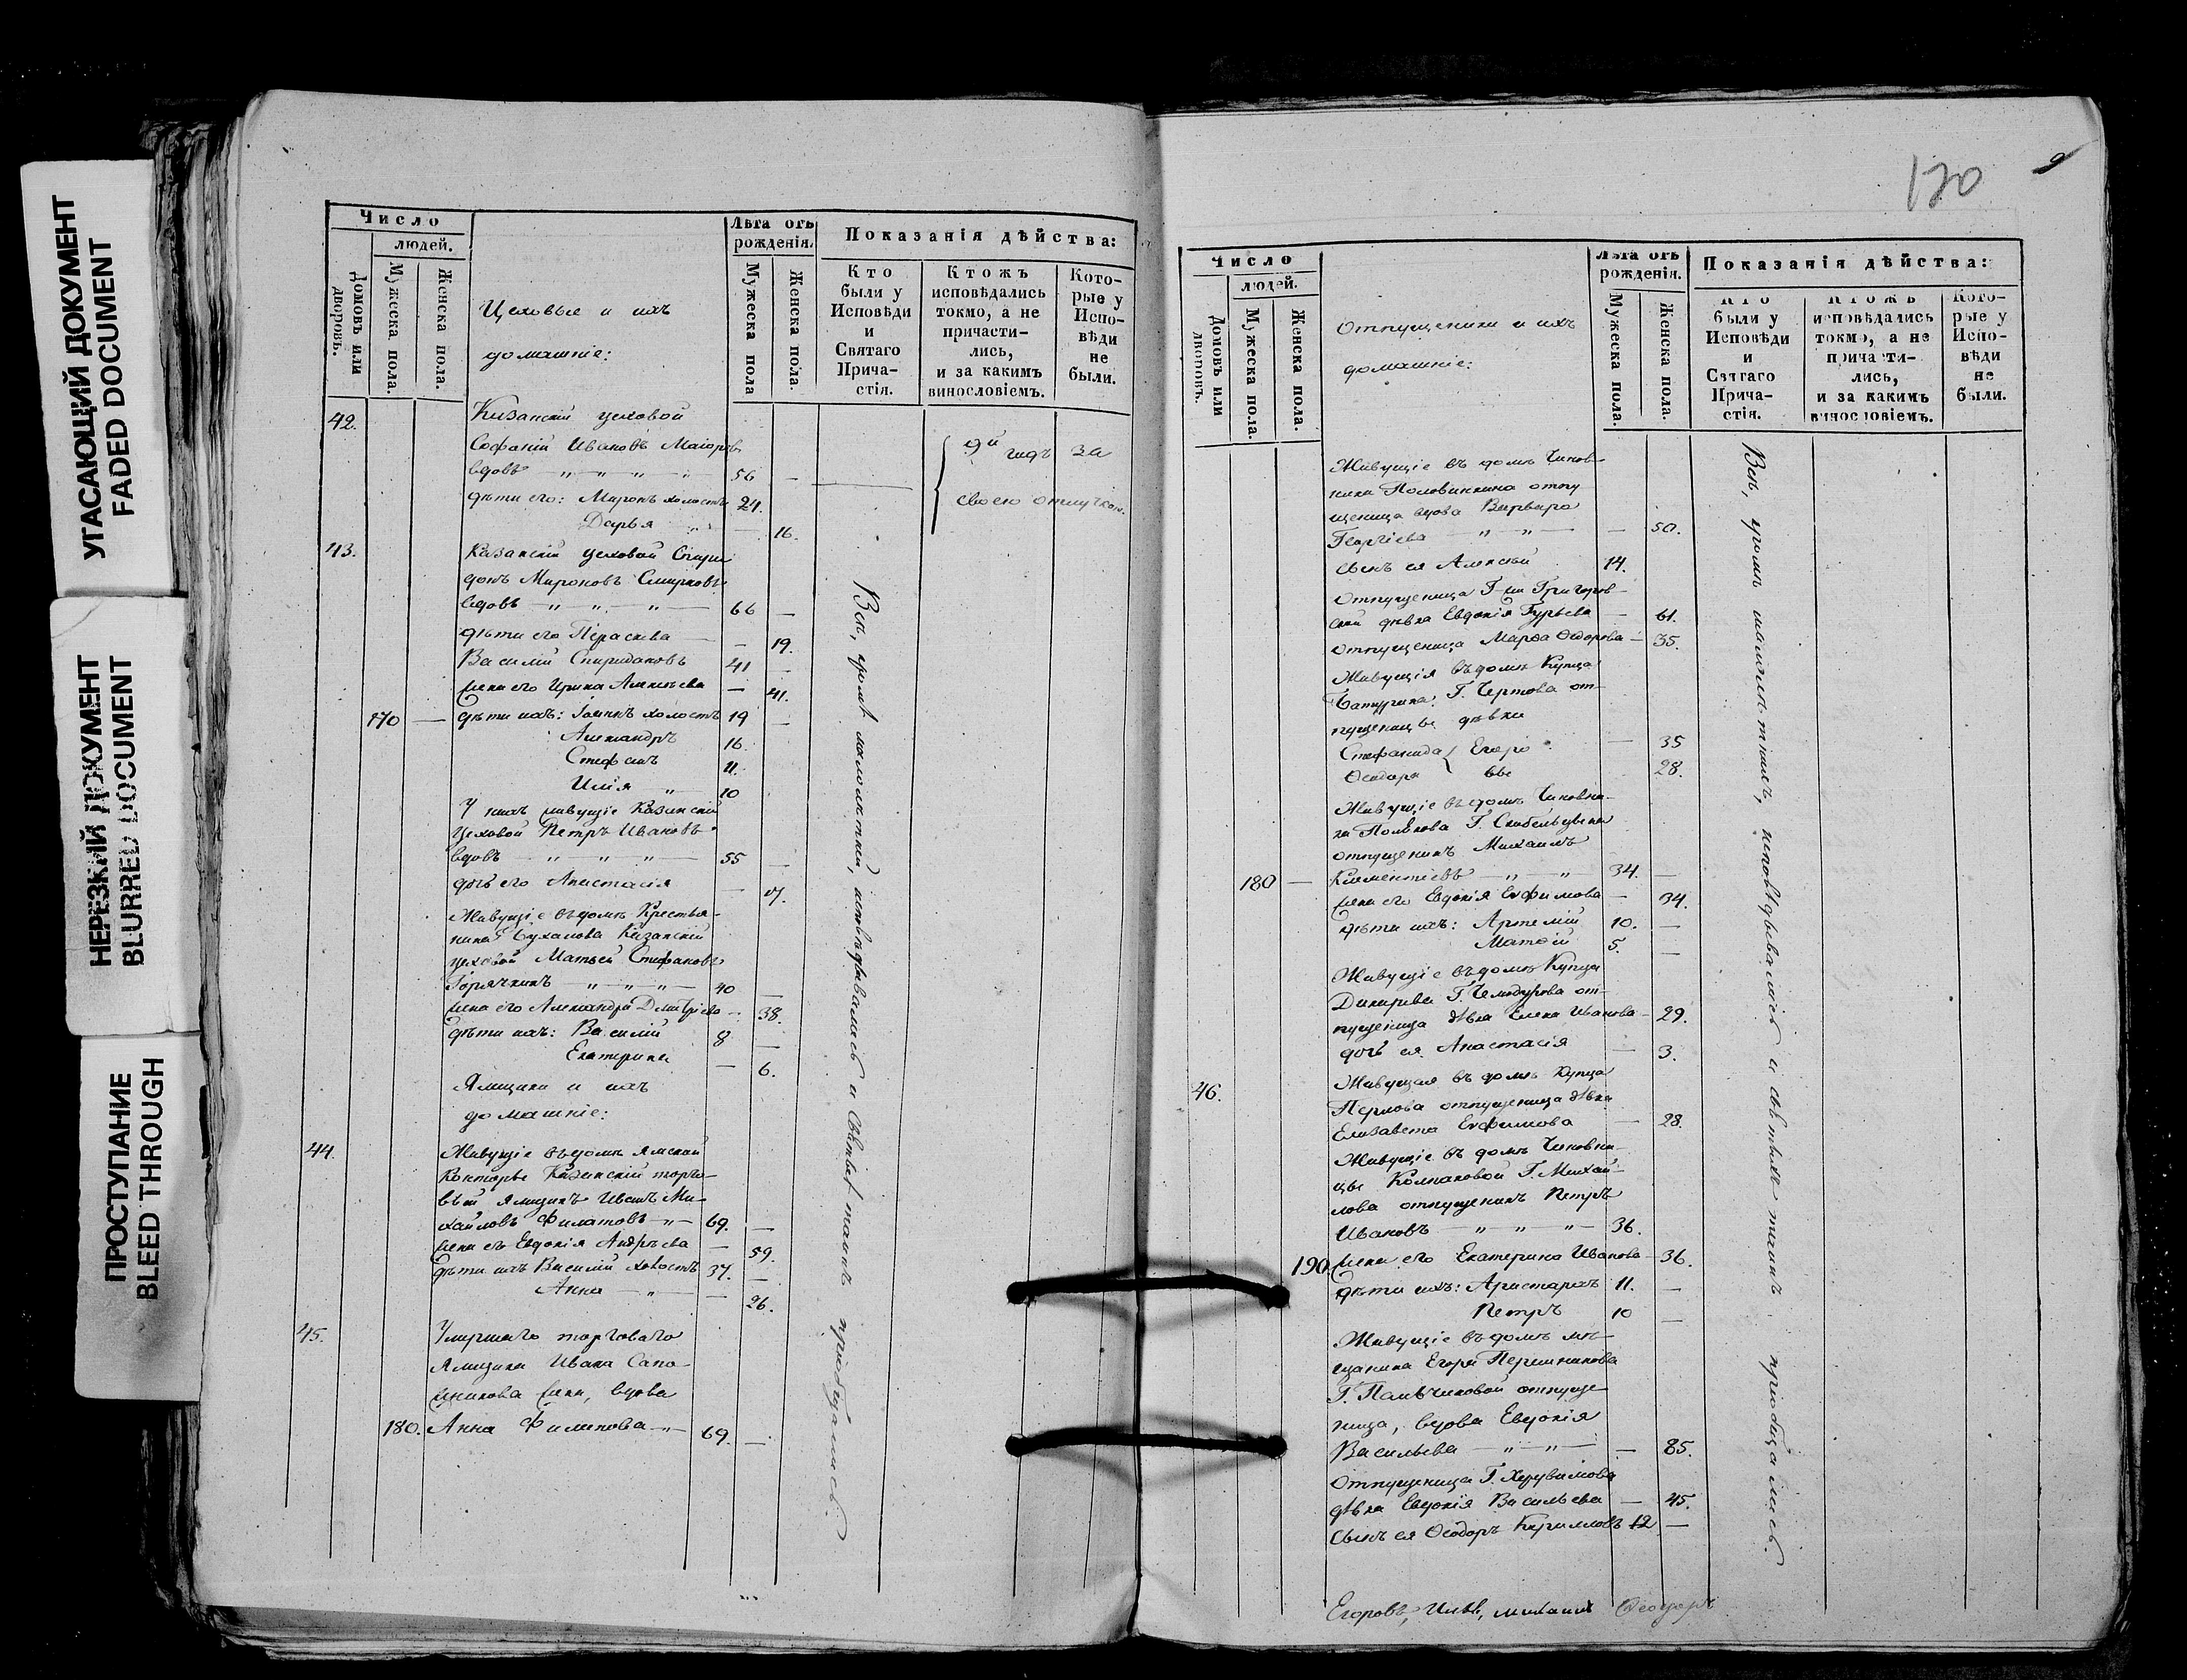 УГАСАЮЩИЙ ДОКУМЕНТ
FADED DOCUMENT
НЕРЕЗКИЙ ДОКУМЕНТ
BLURRED DOCUMENT
ПРОСТУПАНИЕ
BLEED THROUGH
Число
людей.
Домовъ или дворовъ.
Мужеска пола.
Женска пола.
Цеховые и ихъ
домашніе:
Лѣта отъ рожденія.
Мужеска пола
Женска пола.
Показанія дѣйства:
Кто были у Исповѣди и Святаго Прича-стія.
Ктожъ исповѣдались токмо, а не причасти-лись, и за какимъ винословіемъ.
Кото-рые у Испо-вѣди не были.
42. Казанскій цеховой
Софоній Ивановъ Маіоровъ
вдовъ 56 —
дѣти его: Миронъ холостъ 24.
Дарья — 16.
9й годъ за
своею отлучкою.
43. Казанскій цеховой Спири
донъ Мироновъ Смирновъ
вдовъ — „ — „ — „ — 66 —
дѣти его Параскева — 19.
Василій Спиридоновъ 41 —
жена его Ирина Алексѣева — 41.
170 — дѣти ихъ: Іоаннъ холостъ 19 —
Александръ 16.
Стефанъ 11.
Илія „ 10
У нихъ живущіе Казанскій
цеховой Петръ Ивановъ
вдовъ — „ — „ — „ — 55 —
дочь его Анастасія —
Живущіе въ домѣ Крестья-
нина Буханова Казанскій
цеховой Матвей Стефановъ
Горячкинъ — „ — „ — „ — 40 —
жена его Александра Дмитріева — 38.
дѣти ихъ: Василій 8 —
Екатерина — 6.
Ямщики и ихъ
домашніе:
44. Живущіе въ домѣ Ямской
Конторы Казанскій торго-
вый ямщикъ Иванъ Ми-
хайловъ Филатовъ — „ — 69. —
жена его Евдокія Андрѣева — 59.
дѣти ихъ Василій холостъ 37. —
Анна — „ — 26.
45. Умершаго торговаго
Ямщика Ивана Сапо-
жникова жена, вдова
180. Анна Филипова — „ — 69. —
Всѣ, кромѣ малолѣтней, исповѣдывались и Святыхъ таинъ пріобщались.
120
9
Число
людей.
Домовъ или дворовъ.
Мужеска пола.
Женска пола.
Отпущеники и ихъ
домашніе:
Лѣта отъ рожденія.
Мужеска пола.
Женска пола.
Показанія дѣйства:
Кто были у Исповѣди и Святаго Прича-стія.
Ктожъ исповѣдались токмо, а не причасти-лись, и за какимъ винословіемъ.
Кото-рые у Испо-вѣди не были.
Живущіе въ домѣ Чинов-
ника Половинкина отпу
щеница вдова Варвара
Георгіева — „ — „ — — 50.
сынъ ея Алексѣй 14.
Отпущеница Г-жи Григоров-
ской дѣвка Евдокія Гурьева — 61.
отпущеница Марѳа Ѳедорова — 35.
Живущія въ домѣ Купца
Батурина Г. Чертова от-
пущеницы дѣвки
Стефанида { Егоро — 35
Ѳеодора { вы 28.
Живущіе въ домѣ Чиновни-
ка Полякова Г. Скобельцына
отпущеникъ Михаилъ
180 — Климентіевъ — „ — „ — 34. —
жена его Евдокія Евфимова — 34.
дѣти ихъ: Артемій 10. —
Матѳій 5. —
Живущіе въ домѣ Купца
Г. Чемодурова от-
пущеница дѣвка Елена Иванова — 29.
дочь ея Анастасія — 3.
46. Живущая въ домѣ Купца
Перлова отпущеница дѣвка
Елизавета Евфимова — 28.
Живущіе въ домѣ Чиновни-
цы Колпаковой Г. Михай-
лова отпущеникъ Петръ
Ивановъ — „ — „ — „ — 36.
190. жена его Екатерина Иванова — 36.
дѣти ихъ: Аристархъ 11. —
Петръ 10 —
Живущіе въ домѣ мѣ-
щанина Егора Першникова
Г. Пальчиковой отпуще
ница, вдова Евдокія
Васильева — „ — „ — — 85.
Отпущеница Г. Херувимова
дѣвка Евдокія Васильева — 45.
сынъ ея Ѳеодоръ Кириловъ 12 —
Всѣ, кромѣ малолѣтнихъ, исповѣдывались и святыхъ таинъ пріобщались.
Егоровъ, Ильи, Михаилъ Ѳеодоръ